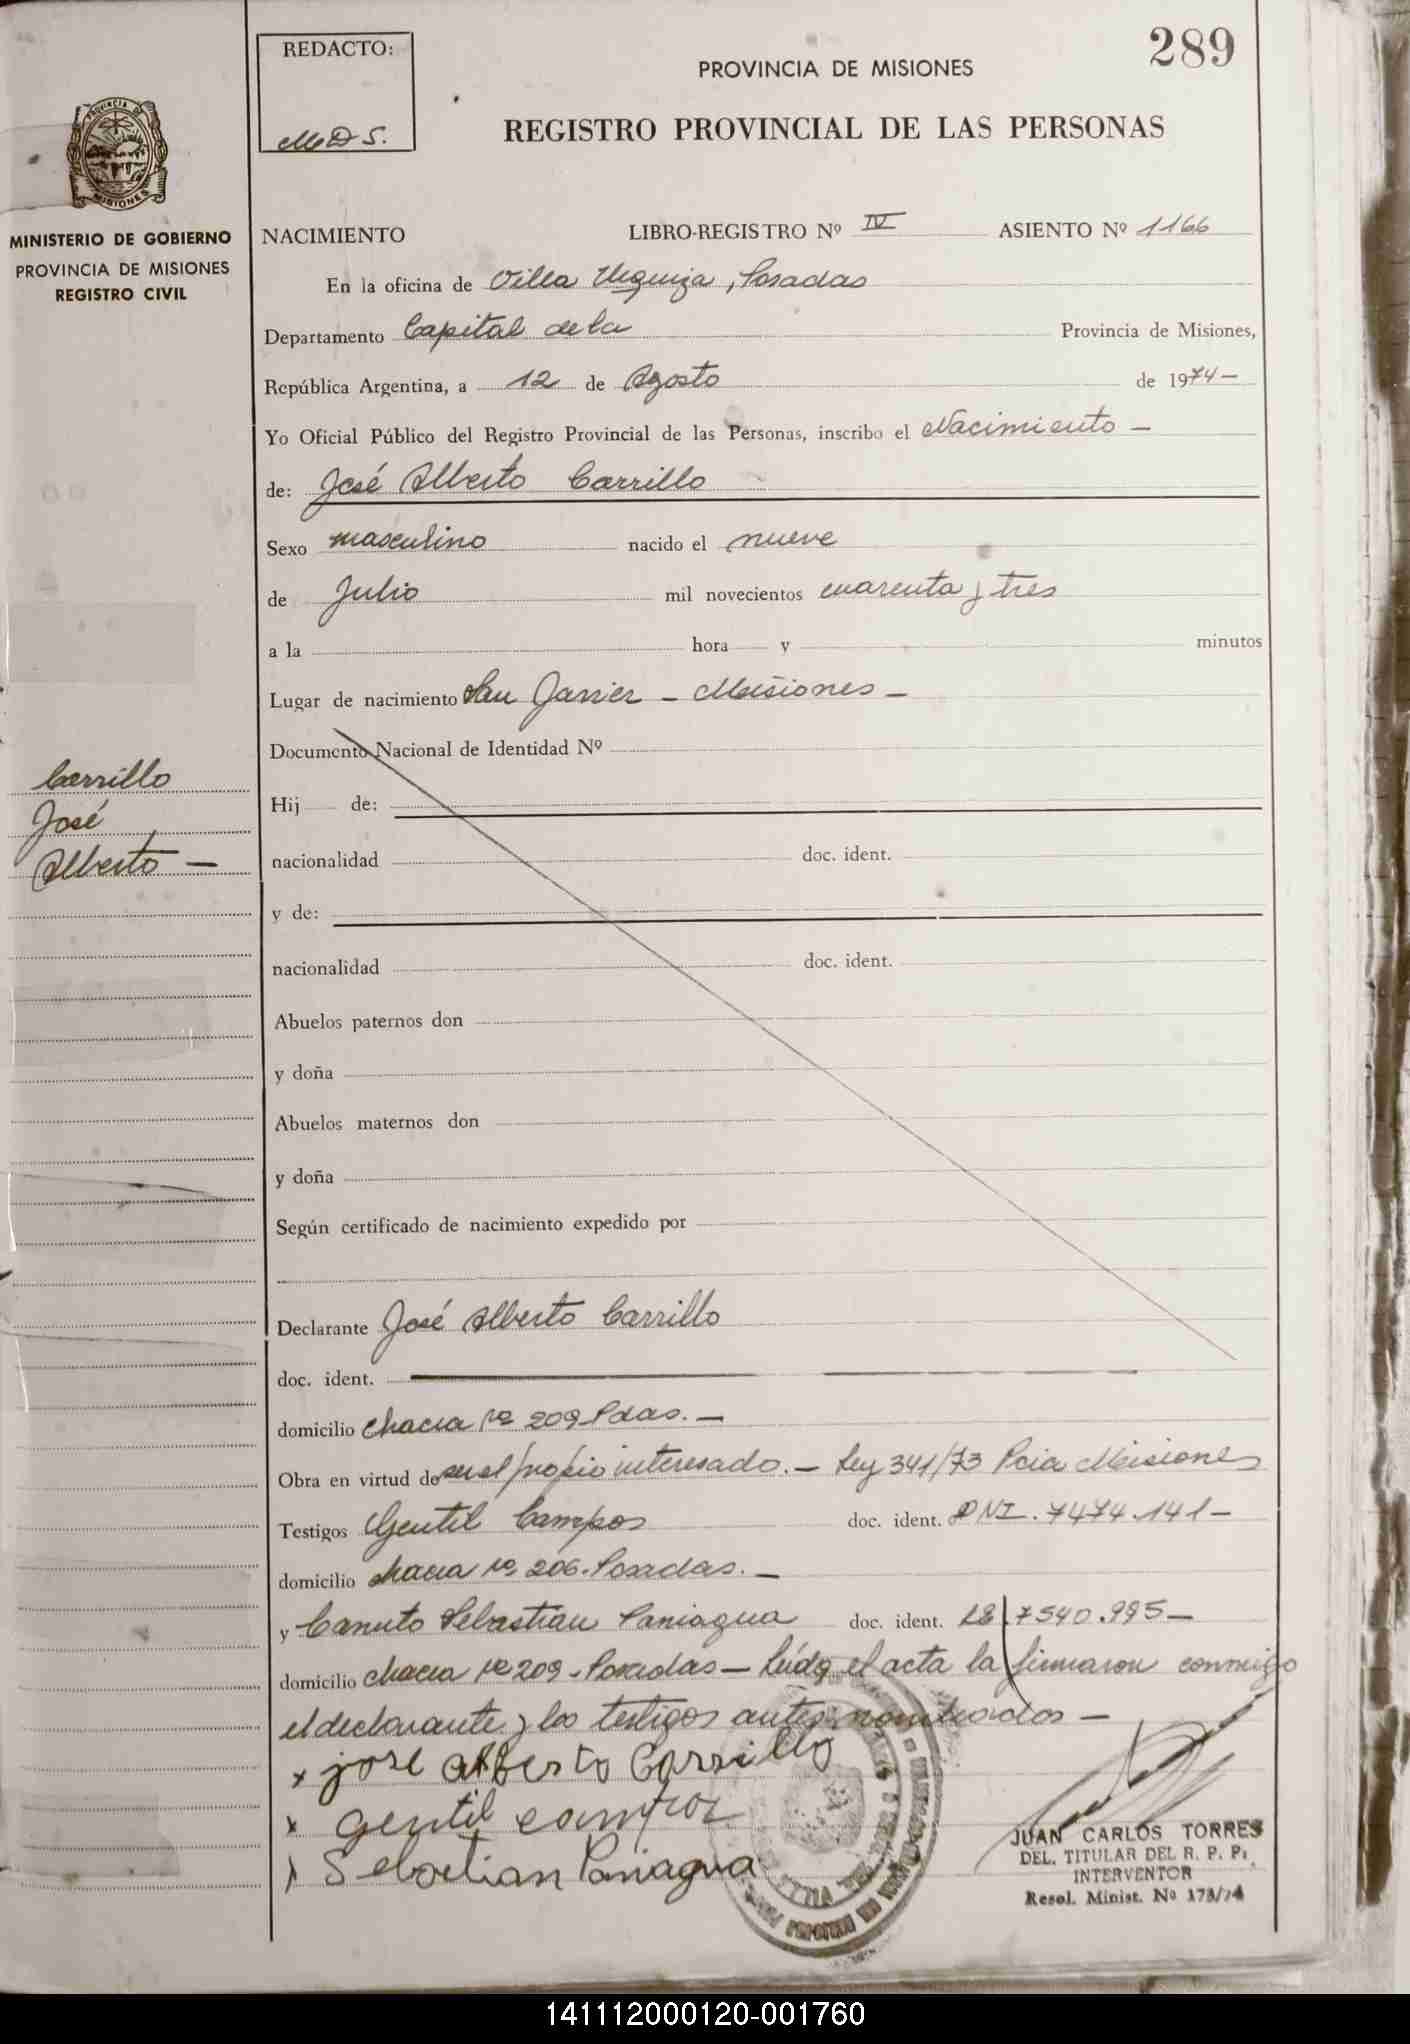 289
REDACTO:
MeD S.
PROVINCIA DE MISIONES
REGISTRO PROVINCIAL DE LAS PERSONAS
PROVINCIA DE
MISIONES
MINISTERIO DE GOBIERNO
PROVINCIA DE MISIONES
REGISTRO CIVIL
NACIMIENTO LIBRO-REGISTRO Nº IV ASIENTO Nº 1166
En la oficina de Villa Urquiza, Posadas
Departamento Capital de la Provincia de Misiones,
República Argentina, a 12 de Agosto de 1974-
Yo Oficial Público del Registro Provincial de las Personas, inscribo el Nacimiento -
de: José Alberto Carrillo
Sexo masculino nacido el nueve
de Julio mil novecientos cuarenta y tres
a la hora y minutos
Lugar de nacimiento San Javier - Misiones -
Documento Nacional de Identidad Nº
Carrillo
José
Alberto -
Hij de:
nacionalidad doc. ident.
y de:
nacionalidad doc. ident.
Abuelos paternos don
y doña
Abuelos maternos don
y doña
Según certificado de nacimiento expedido por
Declarante José Alberto Carrillo
doc. ident.
domicilio chacra Nº 209 Pdas. -
Obra en virtud de ser el propio interesado. - Ley 341/73 Pcia Misiones
Testigos Gentil Campos doc. ident. DNI. 7474.141-
domicilio chacra Nº 206. Posadas. -
y Canuto Sebastian Paniagua doc. ident. LE 7540.995-
domicilio chacra Nº 209 - Posadas - Leída el acta la firmaron conmigo
el declarante y los testigos antes nombrados -
x jose alberto Carrillo
x gentil campos
Sebastian Paniagua
JUAN CARLOS TORRES
DEL. TITULAR DEL R. P. P.
INTERVENTOR
Resol. Minist. Nº 173/74
141112000120-001760